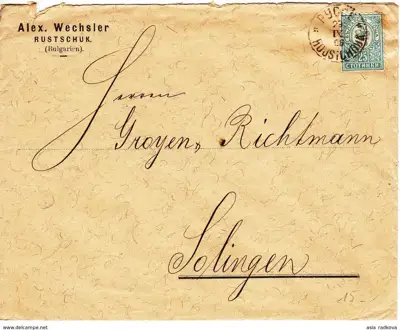 Alex. Wechsler
RUSTSCHUK.
(Bulgarien).
25
Herren
Groyen & Richtmann
Solingen
15
www.delcampe.net
asia radkova